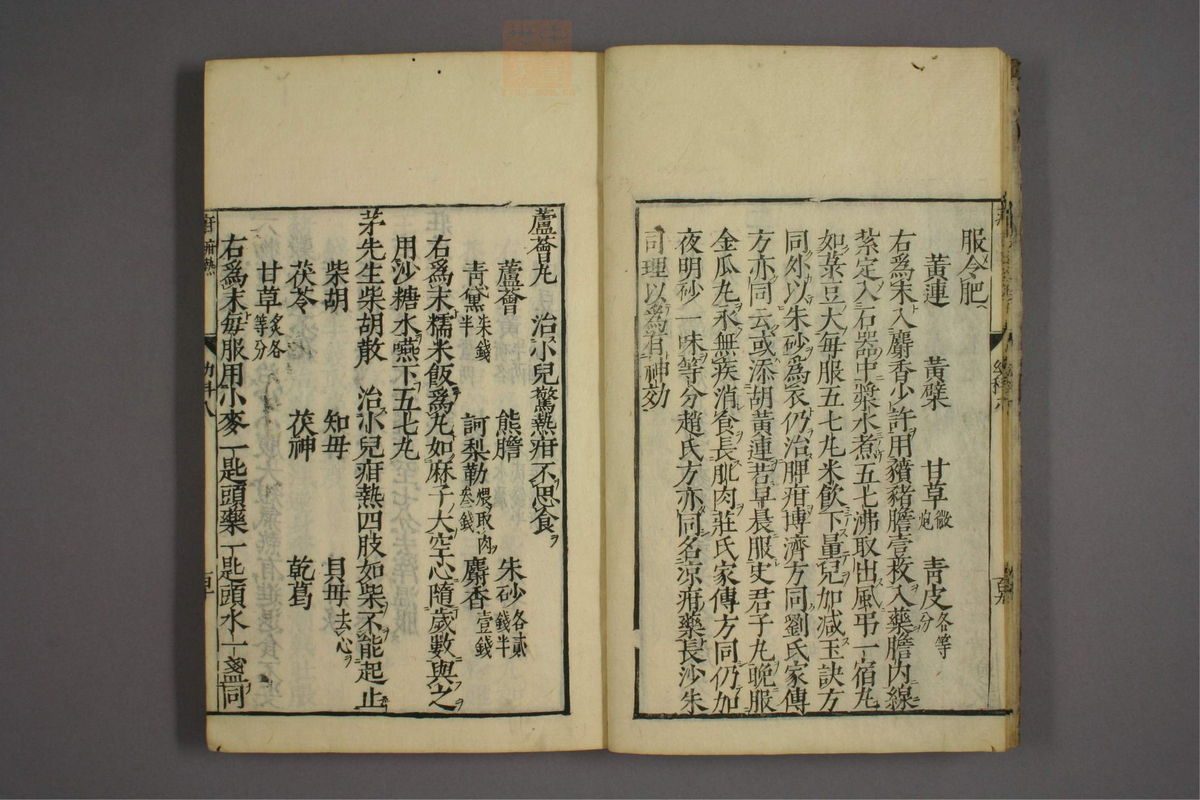 服令肥
黃連 黃檗 甘草微炮 靑皮各等分
右爲末入麝香少許用豶豬膽壹枚入藥膽內線
紮定入石器中漿水煮五七沸取出風弔一宿丸
如菉豆大每服五七丸米飲下量兒加减玉訣方
同外以朱砂爲衣仍治脾疳博濟方同劉氏家傳
方亦同云或添胡黃連若早晨服史君子丸晚服
金瓜丸永無疾消食長肌肉莊氏家傳方同仍加
夜明砂一味等分趙氏方亦同名凉疳藥長沙朱
司理以爲有神効
蘆薈丸 治小兒驚熱疳不思食
蘆薈 熊膽 朱砂各貳錢半
靑黛柒錢半 訶梨勒煨取肉叄錢 麝香壹錢
右爲末糯米飯爲丸如麻子大空心隨歲數與之
用沙糖水嚥下五七丸
茅先生柴胡散 治小兒疳熱四肢如柴不能起止
柴胡 知母 貝母去心
茯苓 茯神 乾葛
甘草炙各等分
右爲末每服用小麥一匙頭藥一匙頭水一盞同